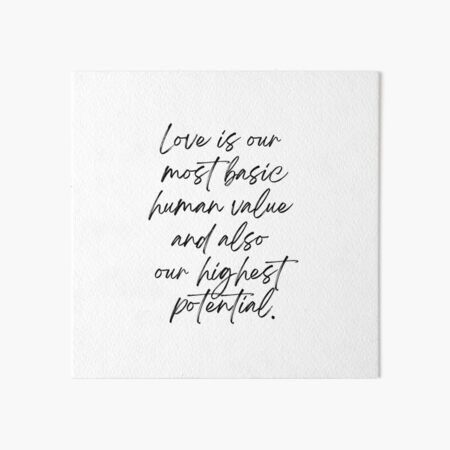 Love is our
most basic
human value
and also
our highest
potential.